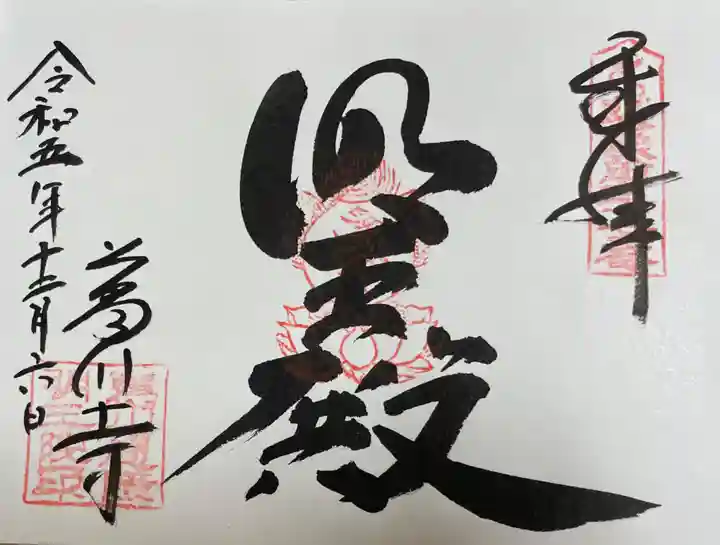 奉拝
明王殿
葛川寺
令和五年十二月六日